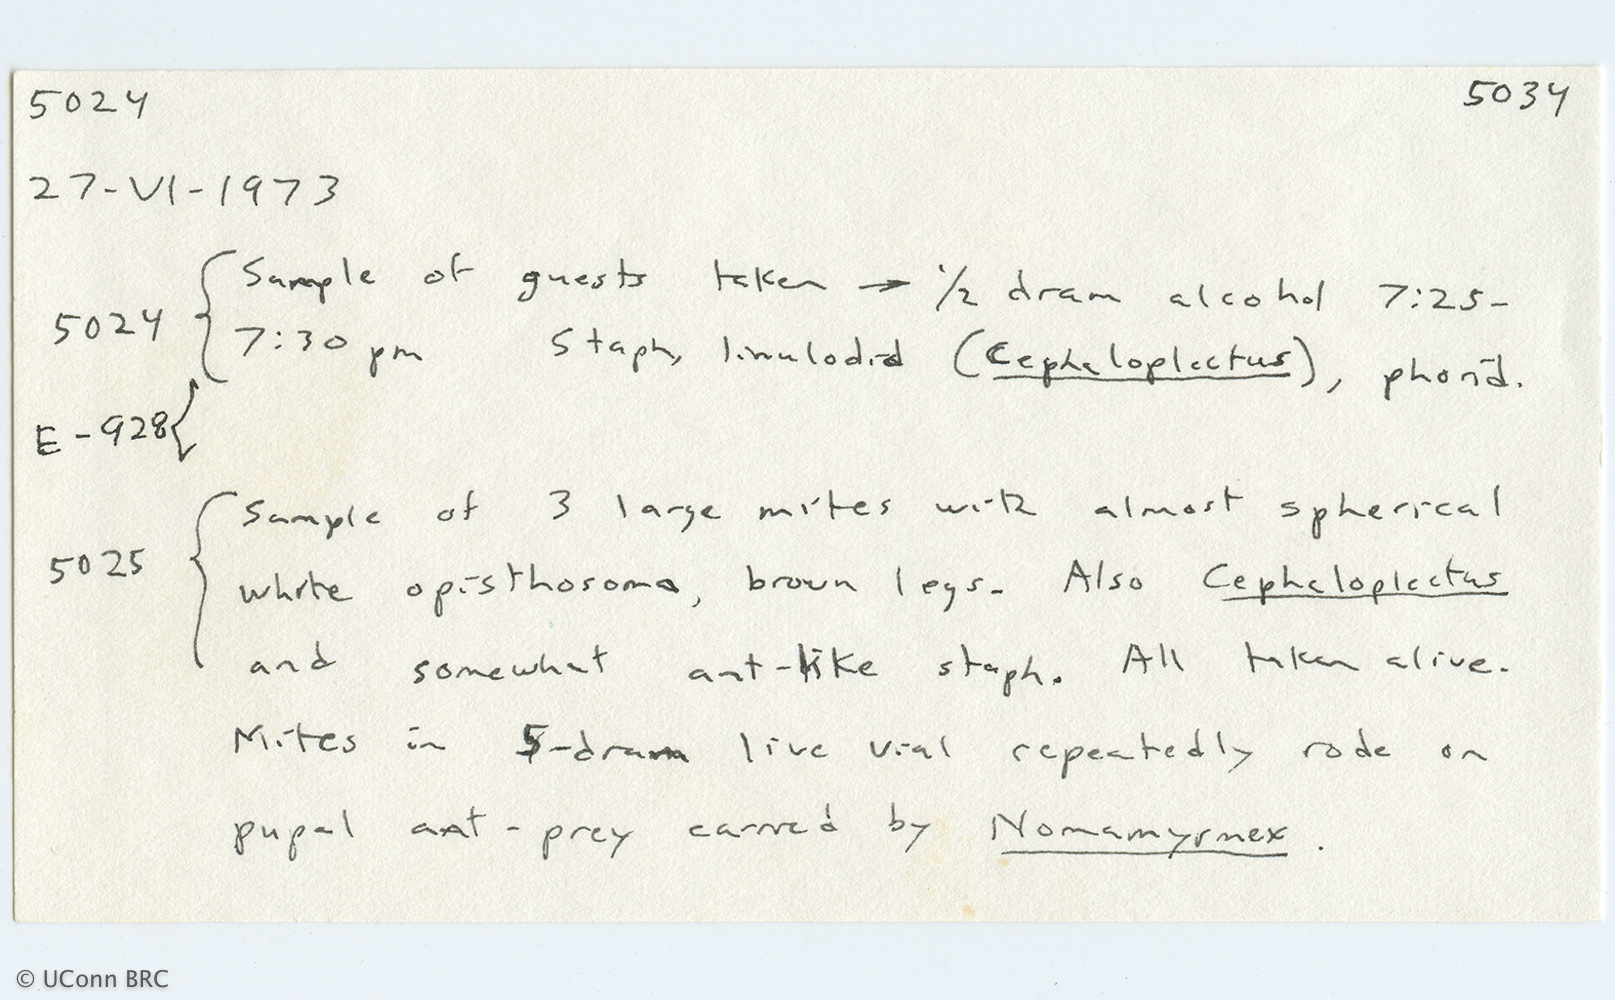 5024 5034
27-VI-1973
5024 { Sample of guests taken → 1/2 dram alcohol 7:25-
7:30 pm Staph, limulodid (Cephaloplectus), phorid.
E-928 {
5025 { Sample of 3 large mites with almost spherical
white opisthosoma, brown legs. Also Cephaloplectus
and somewhat ant-like staph. All taken alive.
Mites in 5-dram live vial repeatedly rode on
pupal ant-prey carried by Nomamyrmex.
© UConn BRC